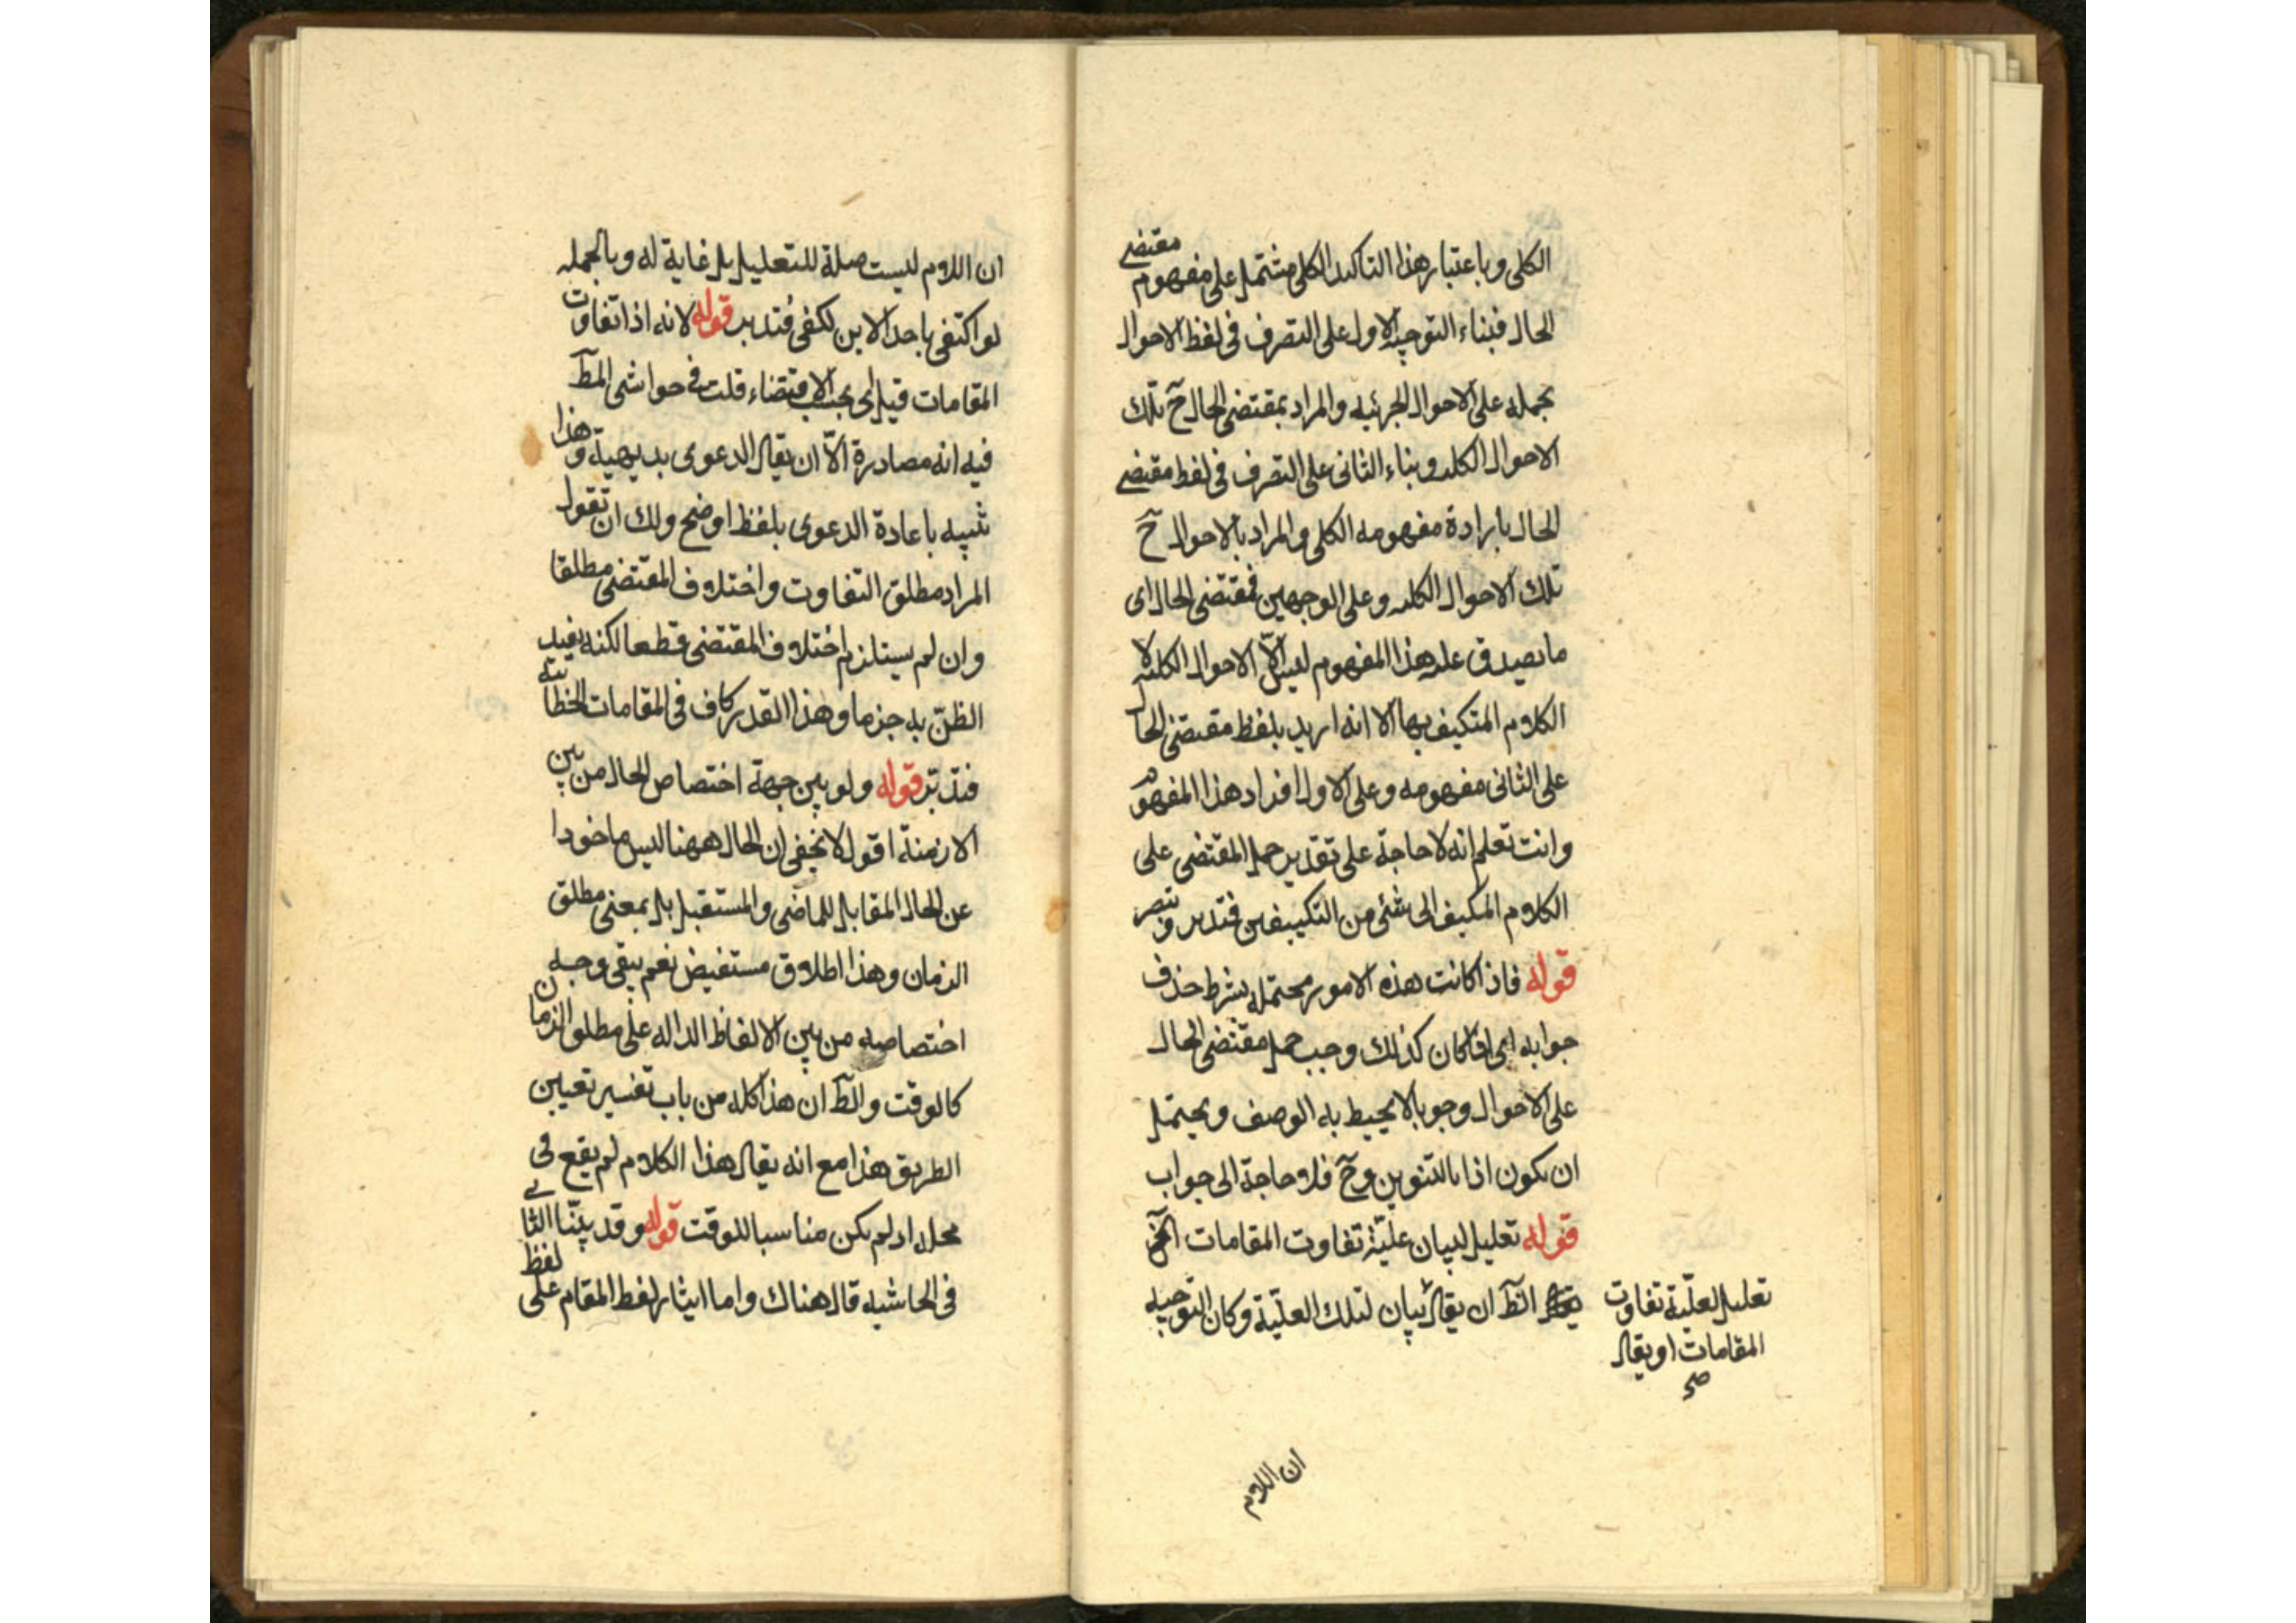 الكلى وباعتبار هذا التاكيد الكلى مشتمل على مفهوم مقتضى
الحال فبناء التوجيه الاول على التصرف فى لفظ الاحوال
بحمله على الاحوال الجزئيه والمراد بمقتضى الحال ح تلك
الاحوال الكليه وبناء الثانى على التصرف فى لفظ مقتضى
الحال بارادة مفهومه الكلى والمراد بالاحوال ح
تلك الاحوال الكليه وعلى الوجهين فمقتضى الحال اى
ما يصدق عليه هذا المفهوم ليس الّا الاحوال الكليه لا
الكلام المتكيف بها الا انه اريد بلفظ مقتضى الحال
على الثانى مفهومه وعلى الاول افراد هذا المفهوم
وانت تعلم انه لا حاجة على تقدير حمل المقتضى على
الكلام المكيف الى شئ من التكييفين فتدبر وتبصر
قوله فاذا كانت هذه الامور محتمله بشرط حذف
جوابه اى اذا كان كذلك وجب حمل مقتضى الحال
على الاحوال وجوبا لا يحيط به الوصف ويحتمل
ان يكون اذا بالتنوين وح فلا حاجة الى جواب
قوله تعليل لبيان عليّة تفاوت المقامات الخ
الظ ان يقال بيان لتلك العليّة وكان التوجيه
تعليل لعليّة تفاوت
المقامات او يقال
صح
ان اللام
ان اللام ليست صلة للتعليل بل غاية له وبالجمله
لو اكتفى باحد الامرين لكفى فتدبر قوله لانه اذا تفاوت
المقامات قيل اى بحسب الاقتضاء قلت فى حواشى المط
فيه انه مصادرة الّا ان يقال الدعوى بديهية وهذا
تنبيه باعادة الدعوى بلفظ اوضح ولك ان تقول
المراد مطلق التفاوت واختلاف المقتضى مطلقا
وان لم يستلزم اختلاف المقتضى قطعا لكنه يفيد
الظنّ به جزما وهذا القدر كاف فى المقامات الخطابية
فتدبّر قوله ولو بين جهة اختصاص الحال من بين
الازمنة اقول لا يخفى ان الحال ههنا ليس ماخوذا
عن الحال المقابل للماضى والمستقبل بل بمعنى مطلق
الزمان وهذا اطلاق مستفيض نعم يبقى وجه
اختصاصه من بين الالفاظ الداله على مطلق الزمان
كالوقت والظ ان هذا كله من باب تفسير تعيين
الطريق هذا مع انه يقال هذا الكلام لم يقع فى
محله اذ لم يكن مناسبا للوقت قوله وقد بيّنّا الثانى
فى الحاشيه قال هناك واما ايثار لفظ المقام على لفظ